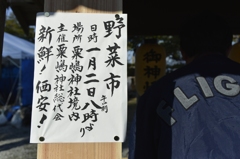 野菜市
日時 一月二日八時より
午前
場所 粟嶋神社境内
主催 粟嶋神社総代会
新鮮！価安！
御神
FLIG